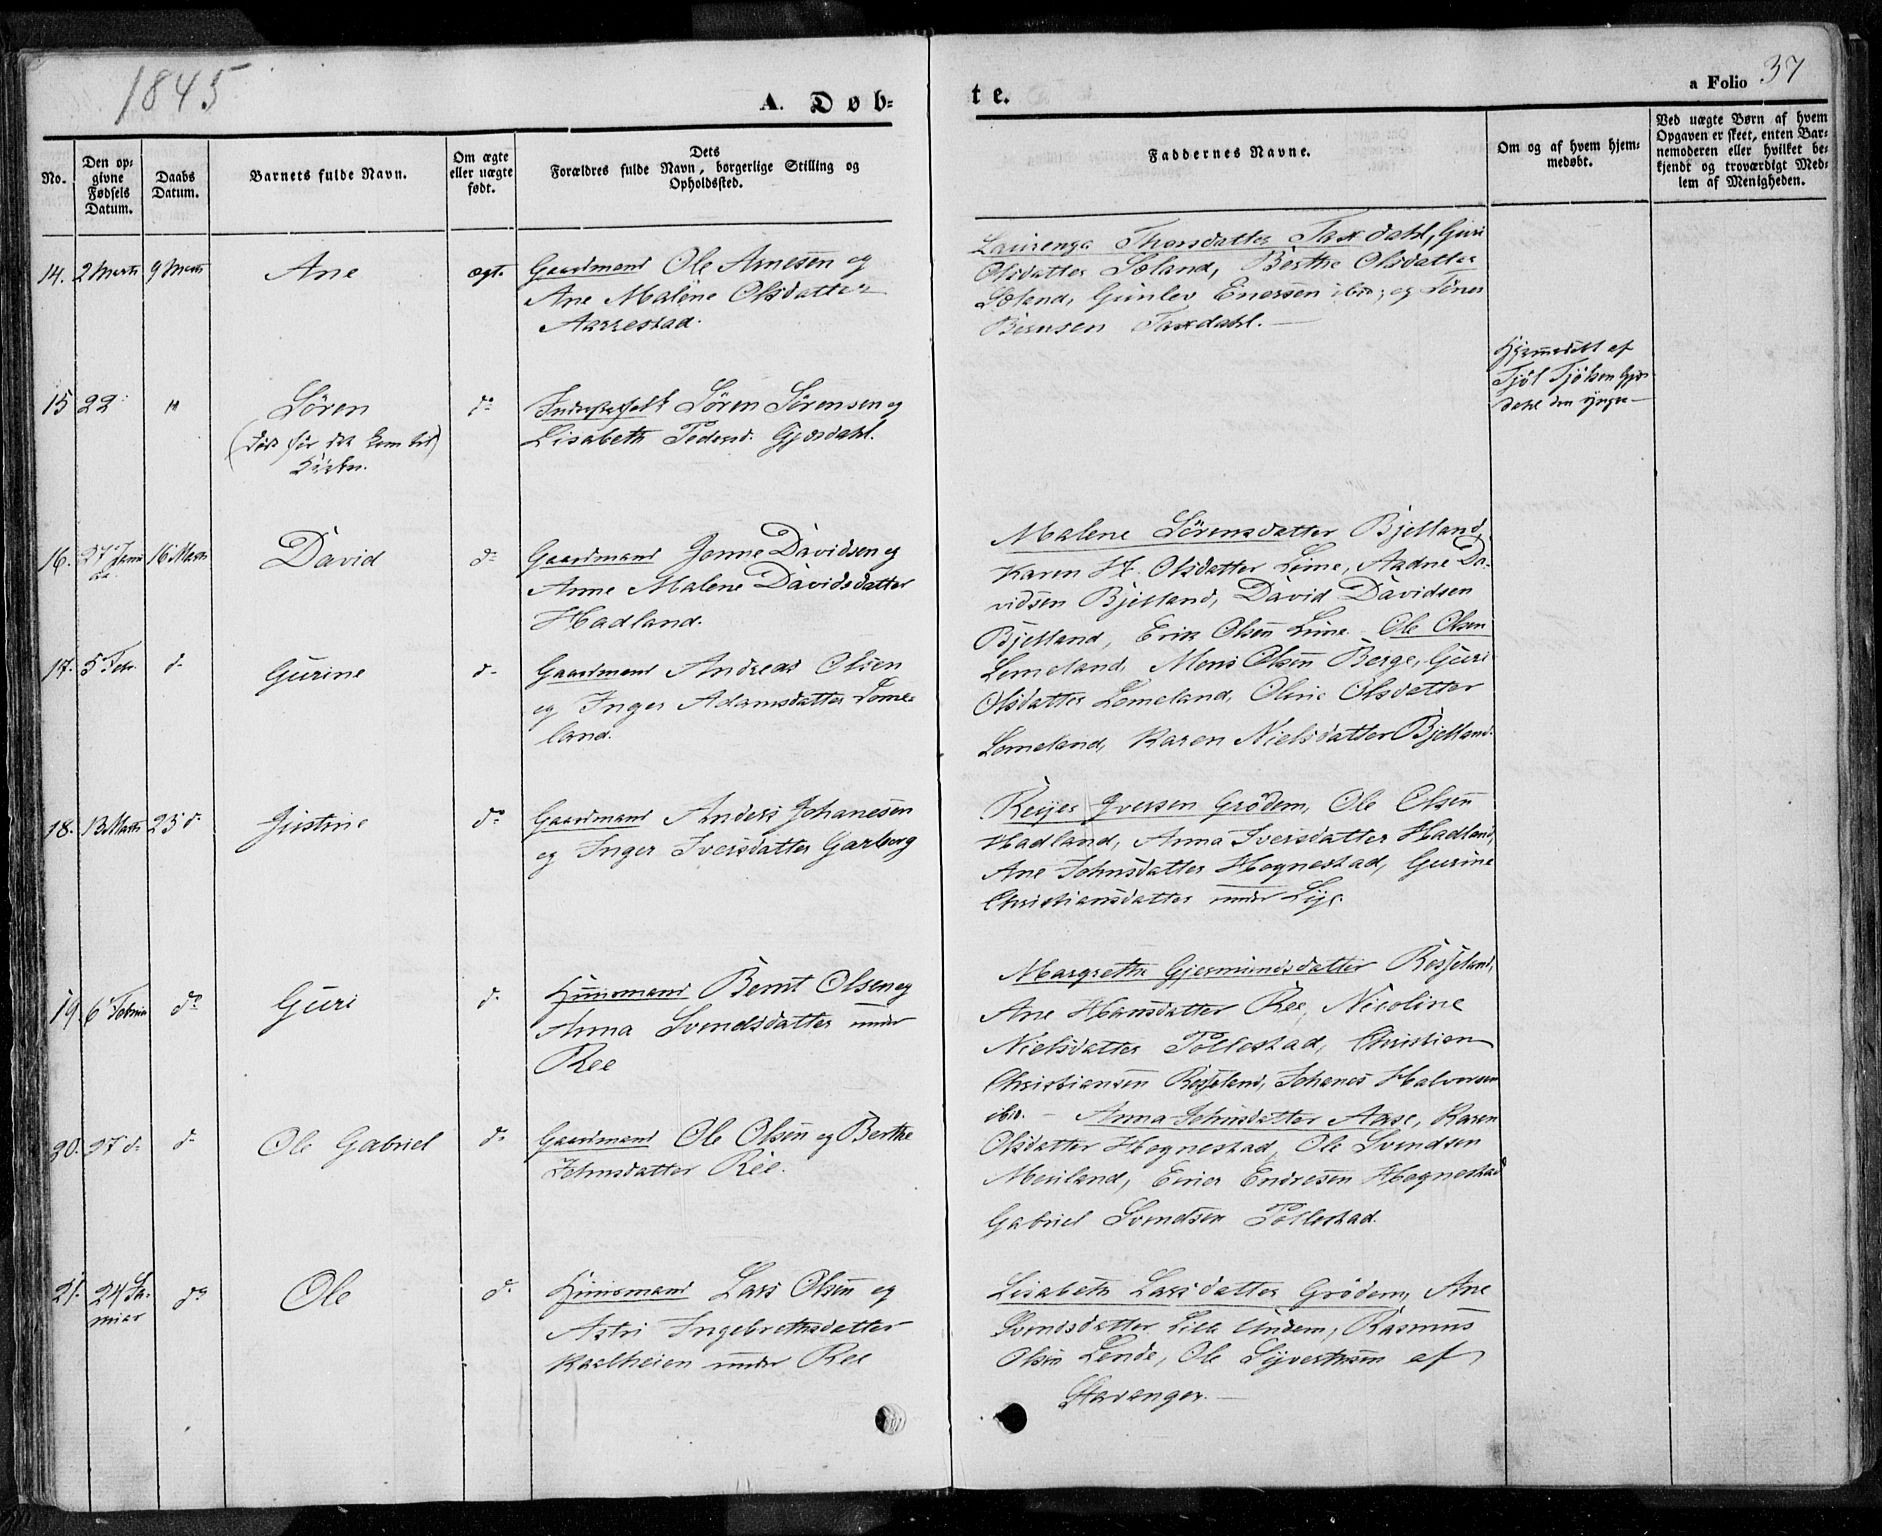 1845
A. Døbte.
a Folio 37
No.
Den opgivne Fødsels Datum.
Daabs Datum.
Barnets fulde Navn.
Om ægte eller uægte født.
Dets Forældres fulde Navn, borgerlige Stilling og Opholdssted.
Faddernes Navne.
Om og af hvem hjemmedøbt.
Ved uægte Børn af hvem Opgaven er skeet, enten Barnemoderen eller hvilket bekjendt og troværdigt Medlem af Menigheden.
14. 2 Marts 9 Marts Ane ægt.
Gaardmand Ole Arnesen og
Ane Malene Olsdatter
Aarrestad.
Laurenza Thorsdatter Taxdahl, Guri
Olsdatter Sæland, Berthe Olsdatter
Sæland, Gunlev Enersen ibid; og Sören
Bernsen Taxdahl.
15 22 " Sören do
(døde før det kom til
Kirken.
Söfren Sörensen og
Lisabeth Pedersd. Gjesdahl.
Hjemmedöbt af
Tjöl Tjölsen Gjes
dahl den yngre
16. 27 Janu
ar. 16 Marts David do
Gaardmand Jonne Davidsen og
Anne Malene Davidsdatter
Hadland.
Malene Sörensdatter Bjelland,
Karen H. Olsdatter Lime, Aadne Da-
vidsen Bjelland, David Davidsen
Bjelland, Erik Olsen Lime.
17. 5 Febr. do Gurine do
Gaardmand Andreas Olsen
og Inger Adamsdatter Lome-
land.
Ole Olsen
Lomeland, Mons Olsen Berge, Guri
Olsdatter Lomeland, Oline Olsdatter
Lomeland, Karen Nielsdatter Bjelland.
18. 13 Marts 23 do Justine do
Gaardmand Anders Johanesen
og Inger Iversdatter Garborg
Reijer Iversen Grödem, Ole Olsen
Hadland, Anna Iversdatter Hadland,
Ane Johnsdatter Hognestad, Gurine
Christiansdatter under Lye.
19. 6 Februar do Guri do
Huusmand Bernt Olsen og
Anna Svendsdatter under
Ree
Margrethe Gjermundsdatter Rosseland,
Ane Hansdatter Ree, Nicoline
Nielsdatter Tollestad, Christian
Christiansen Rosseland, Johanes Halvorsen
ibid.
20. 27 do do Ole Gabriel do
Gaardmand Ole Olsen og Berthe
Johnsdatter Ree.
Anna Johnsdatter Aase, Karen
Olsdatter Hognestad, Ole Svendsen
Meiland, Einer Endresen Hognestad
Gabriel Svendsen Tollestad.
21. 24 Ja-
nuar do Ole do
Huusmand Lars Olsen og
Astri Ingebrethsdatter
Kaalheien under Ree
Lisabeth Larsdatter Grödem, Ane
Svendsdatter Lille Undem, Rasmus
Olsen Lende, Ole Syvertsen af
Stavanger.